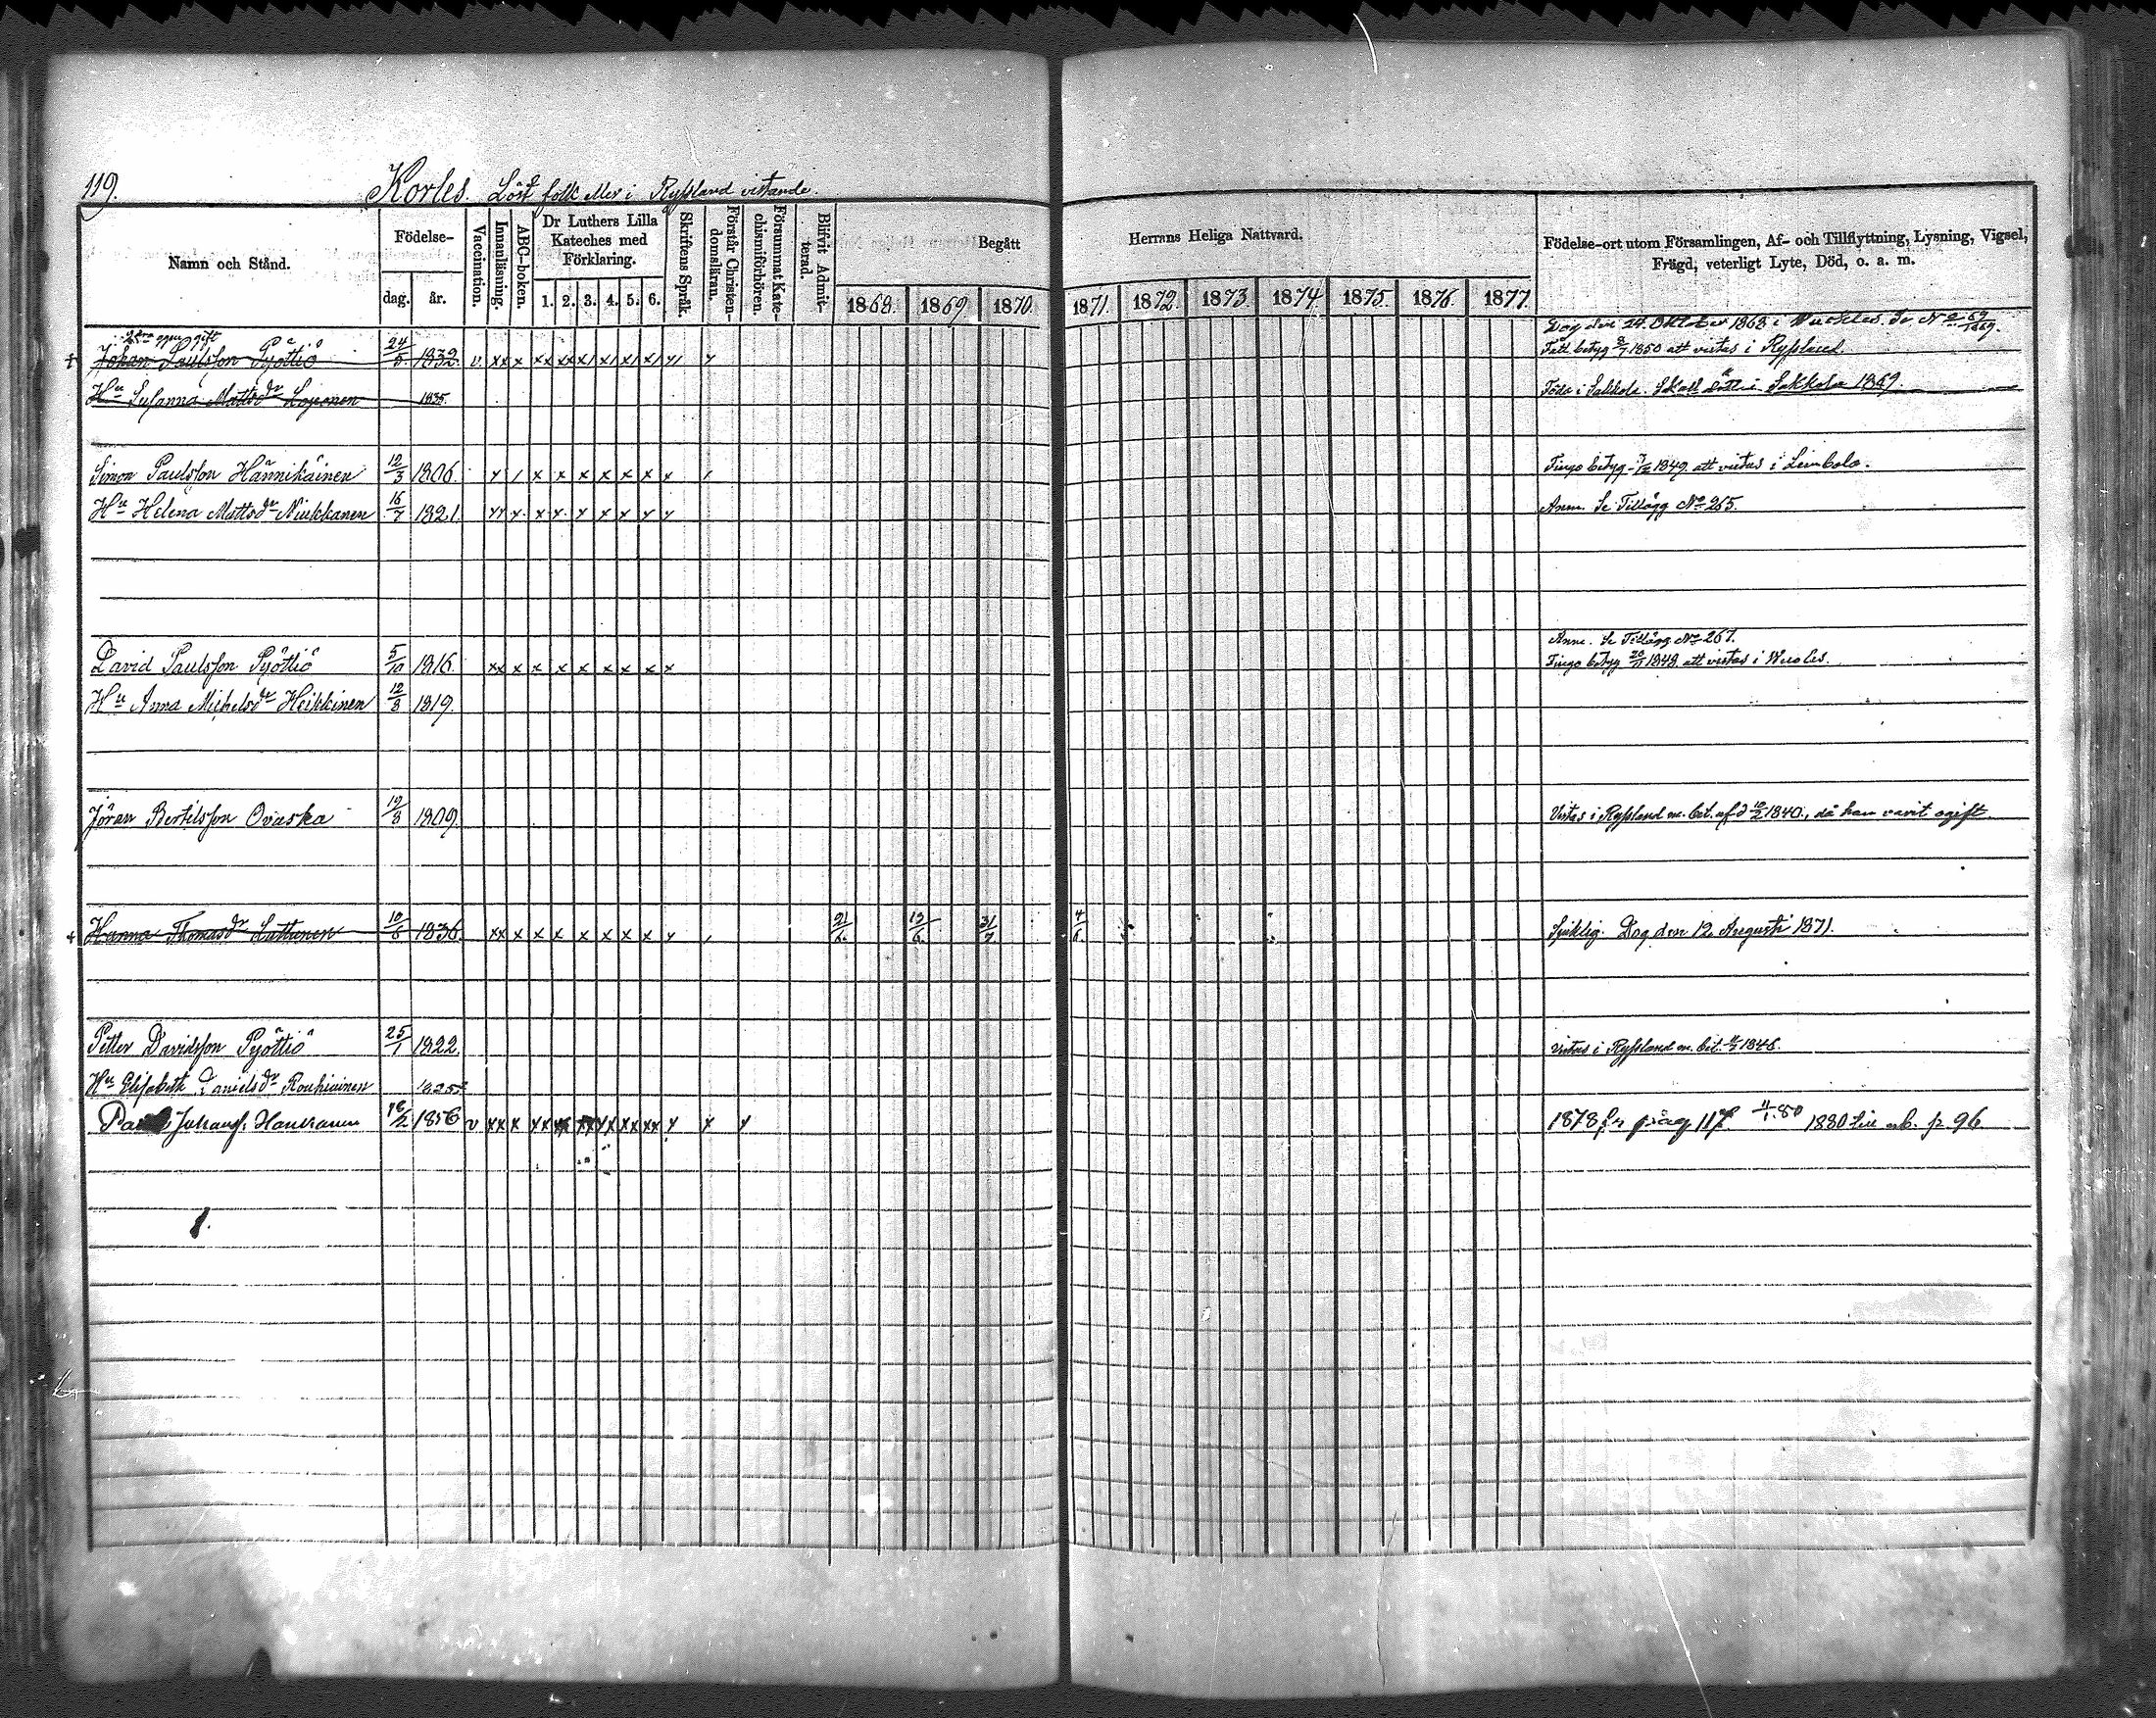 119.
Korles. Löst folk eller i Ryssland vistande.
Namn och Stånd.
Födelse-
dag. år.
Vaccination.
Innanläsning.
ABC-boken.
Dr Luthers Lilla Kateches med Förklaring.
1. 2. 3. 4. 5. 6.
Skriftens Språk.
Förstår Christendomsläran.
Försummat Katechismiförhören.
Blifvit Admitterad.
Begått Herrans Heliga Nattvard.
1868. 1869. 1870. 1871. 1872. 1873. 1874. 1875. 1876. 1877.
Födelse-ort utom Församlingen, Af- och Tillflyttning, Lysning, Vigsel,
Frägd, veterligt Lyte, Död, o. a. m.
gift Dog den 24. Oktober 1868 i Se No 69/1869.
Johan Paulsson Pyöttiö 24/5 1832. v. xx x xx xx x/ x/ x/ x/ Fått betyg 1850 att vistas i Ryssland.
Hu Susanna Mattsdr Koponen 1835. Född i Sakkola. Skall dött i Sakkola 1869.
Simon Paulsson Hännikäinen 12/3 1806. x x x x x x Tingo betyg 1849 att vistas i Lembolo.
Hu Helena Mattsdr Niukkanen 16/7 1821. x x x x x x Anm. Se Tillägg No 265.
Anm. Se Tillägg No 267.
David Paulsson Pyöttiö 5/10 1816. xx x x x x x x x x Tingo betyg 20/11 1848 att vistas i Wuoles.
Hu Anna Michelsdr Heikkinen 12/8 1819.
Jöran Bertilsson Ovaska 19/8 1809 Vistas i Ryssland m. bet. af d 1840., då han varit ogift.
Hanna Thomasdr Luttunen 10/6 1836. xx x x x x x x x 21/6. 12/6. 31/7 4/6. Sjuklig. Dog den 12 Augusti 1871.
Petter Davidsson Pyöttiö 25/1 1822. Vistas i Ryssland m. bet. 1846.
Hu Elisabeth Danielsdr Rouhiainen 1825
Juhanss. Haukanen 18/2 1856 v xx x xx xx xx xx xx 1878 fr påg 117. 11/1.80 1880 p. 96